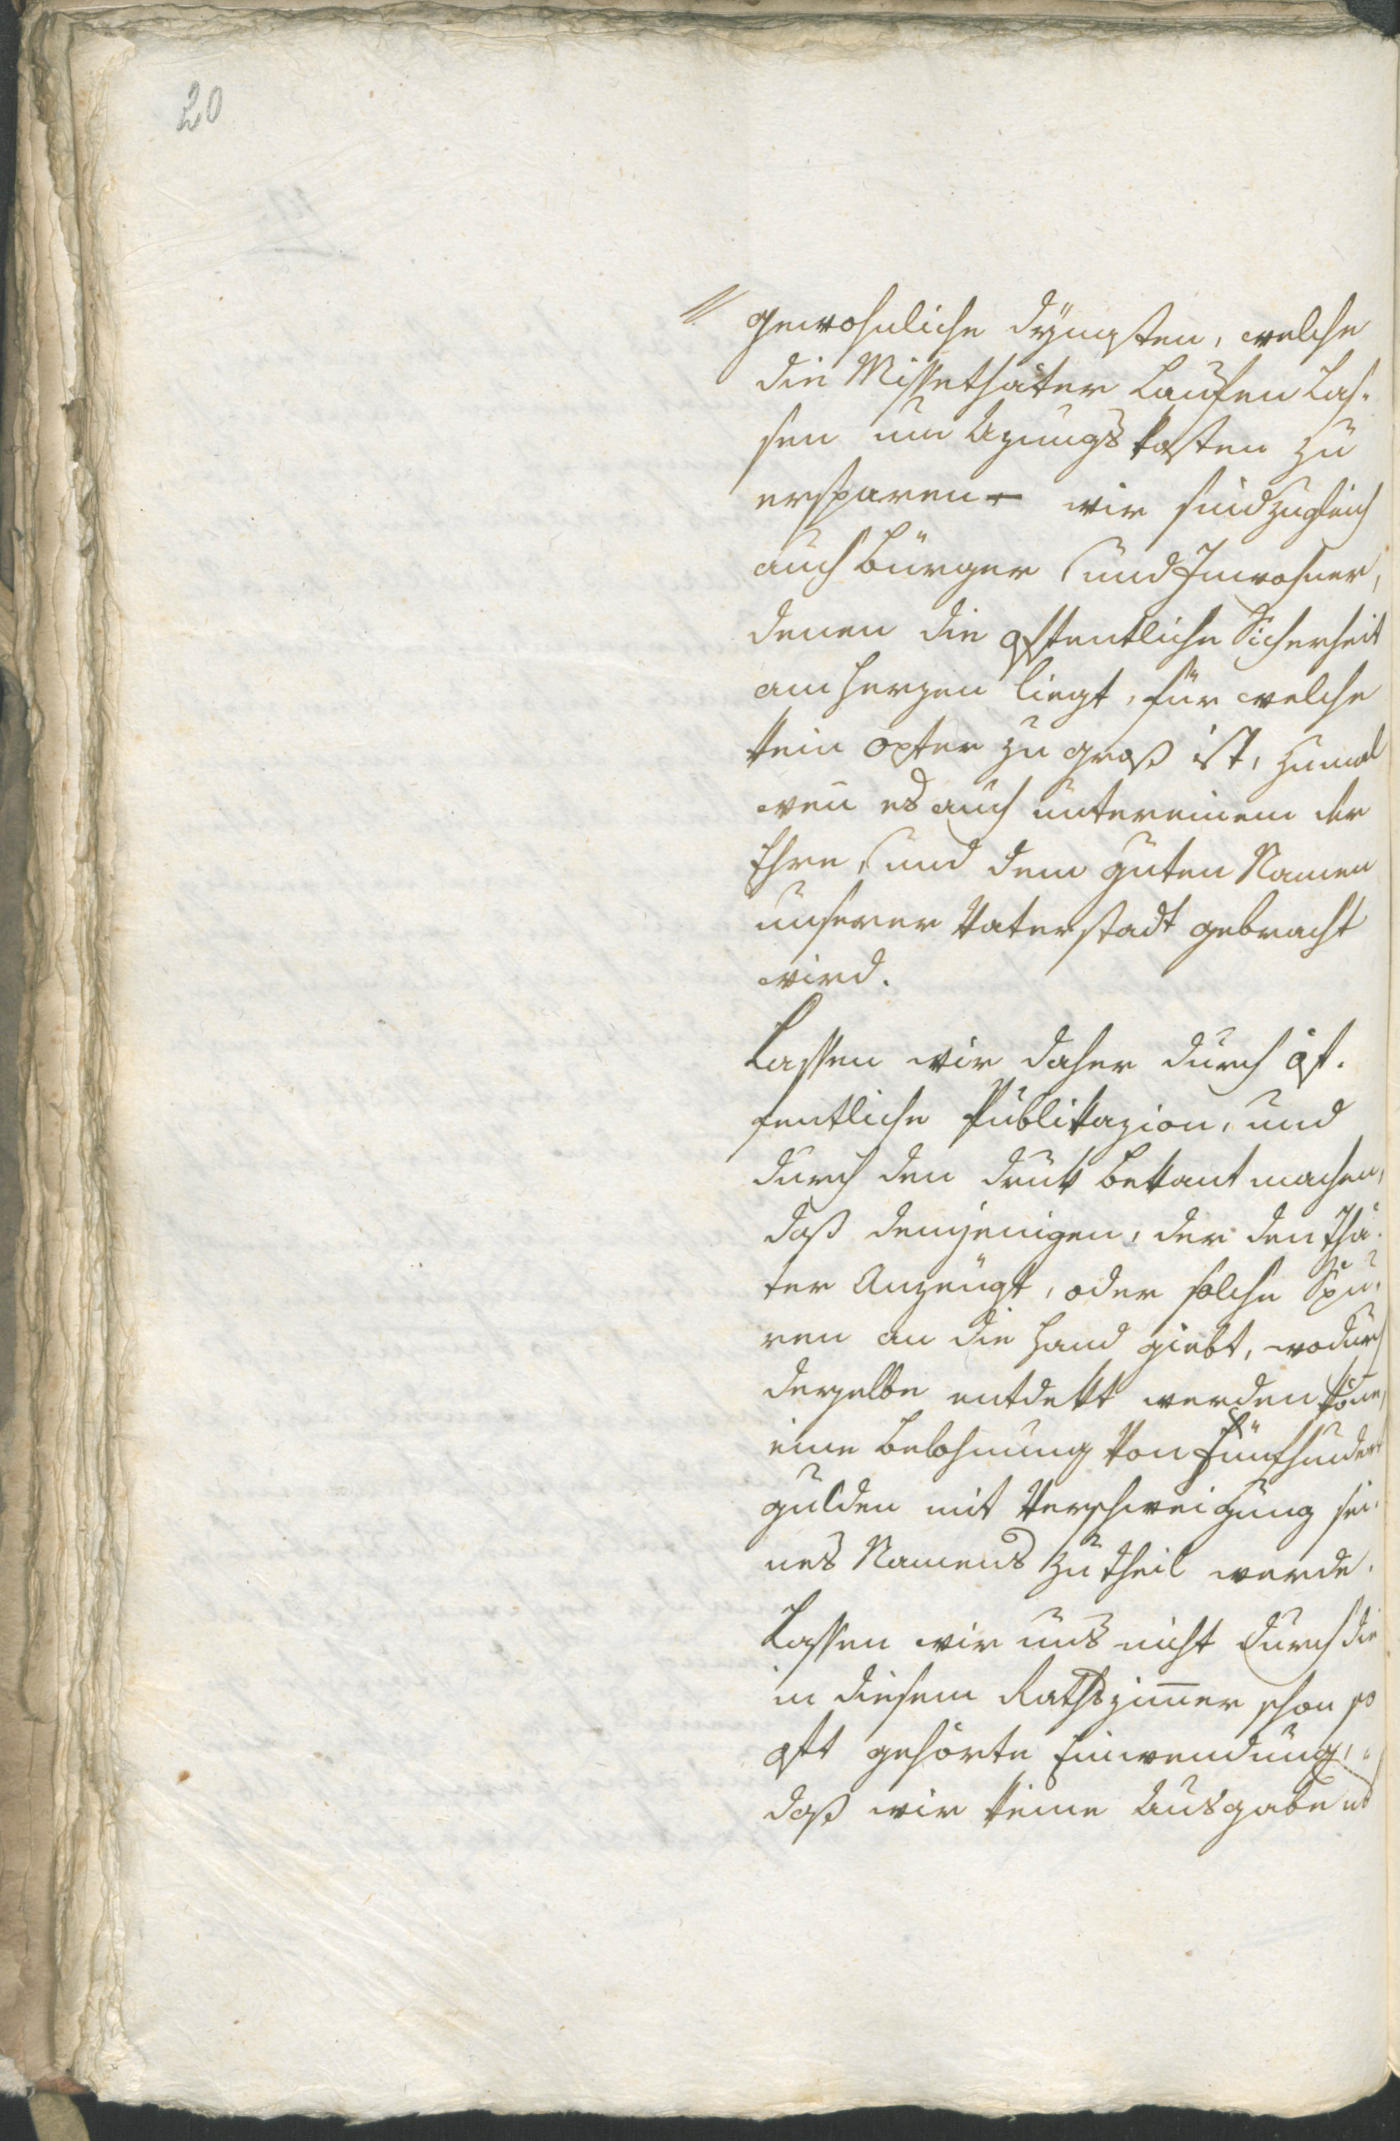 20
gewohnliche Dynasten, welche
die Missethäter Laufen Las-
sen um Azungskosten zu
ersparen – wir sind zugleich
auch Bürger und Inwohner,
denen die offentliche Sicherheit
am Herzen liegt, für welche
kein Opfer zu groß ist, zumal
wen̄ es auch untereinem der
Ehre, und dem guten Namen
unserer Vaterstadt gebracht
wird.
Lassen wir daher durch öf-
fentliche Publikazion, und
durch den Druk bekant machen,
daß demjenigen, der den Thä-
ter Anzeugt, oder solche Spu-
ren an die Hand giebt, wodurch
derselbe entdekt werden köne,
eine Belohnung von Fünfhundert
gulden mit Verschweigung sei-
nes Namens zu Theil werde.
Lassen wir uns nicht durch die
in diesem Rathszim̄er schon so
oft gehörte Einwendung,
daß wir keine Ausgabe